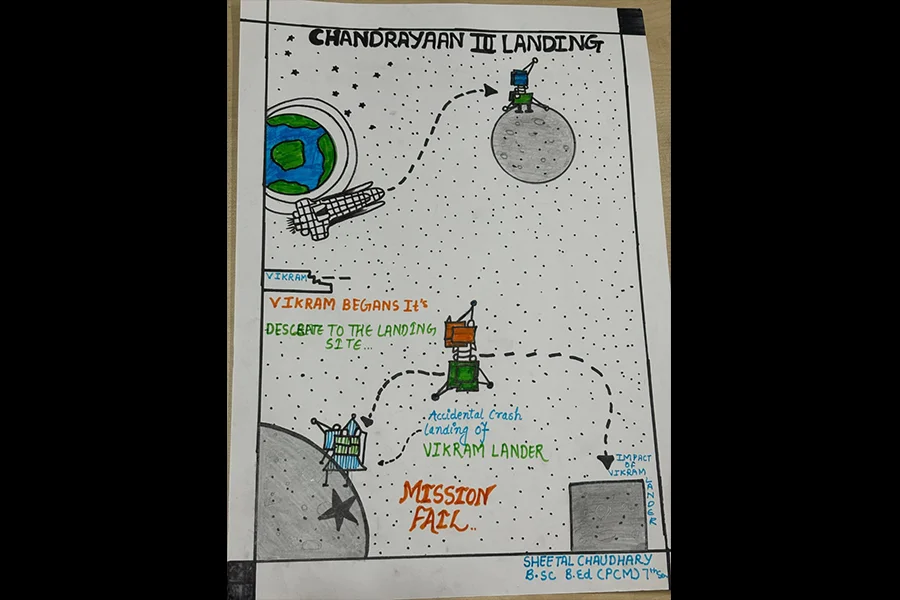 CHANDRAYAAN III LANDING
VIKRAM
VIKRAM BEGANS It's
TO THE LANDING
SITE...
Accidental Crash
landing of
VIKRAM LANDER
MISSION
FAIL..
IMPACT
OF
VIKRAM
LANDER
SHEETAL CHAUDHARY
B.sc B.Ed (PCM) 7th Sem